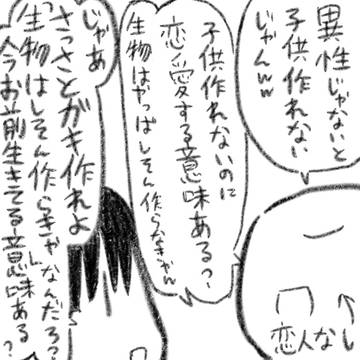 異性じゃないと
子供作れない
じゃんww
子供作れないのに
恋愛する意味ある？
生物はやっぱしそん作らなきゃん
じゃあ
さっさとガキ作れよ
生物はしそん作らなきゃなんだろ？
今お前生きてる意味ある？
恋人なし